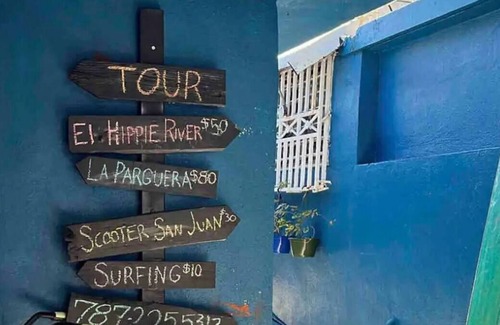 TOUR
El HIPPIE RIVER $50
LA PARGUERA $80
SCOOTER SAN JUAN $30
SURFING $10
787-2255312